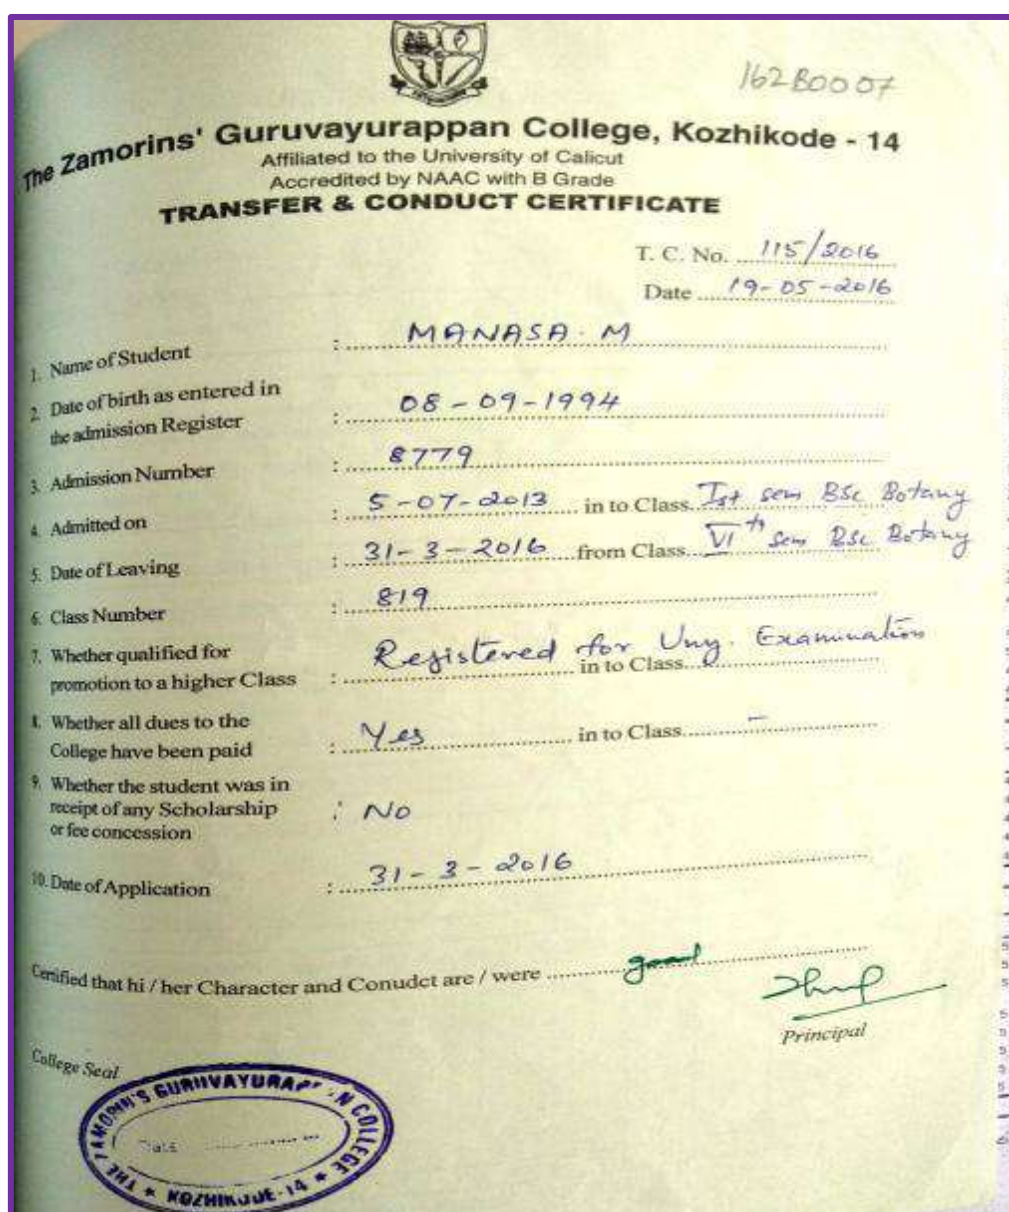 162B0007
The Zamorins' Guruvayurappan College, Kozhikode - 14
Affiliated to the University of Calicut
Accredited by NAAC with B Grade
TRANSFER & CONDUCT CERTIFICATE
T. C. No. 115/2016
Date 19-05-2016
1. Name of Student : MANASA. M
2. Date of birth as entered in
the admission Register : 08-09-1994
3. Admission Number : 8779
4. Admitted on : 5-07-2013 in to Class Ist sem BSc Botany
5. Date of Leaving : 31-3-2016 from Class VIth sem BSc Botany
6. Class Number : 819
7. Whether qualified for
promotion to a higher Class : Registered for Uny. Examination in to Class
8. Whether all dues to the
College have been paid : Yes in to Class –
9. Whether the student was in
receipt of any Scholarship : No
or fee concession
10. Date of Application : 31-3-2016
Certified that hi / her Character and Conudct are / were good
Principal
College Seal
THE ZAMORIN'S GURUVAYURAPPAN COLLEGE
KOZHIKODE-14